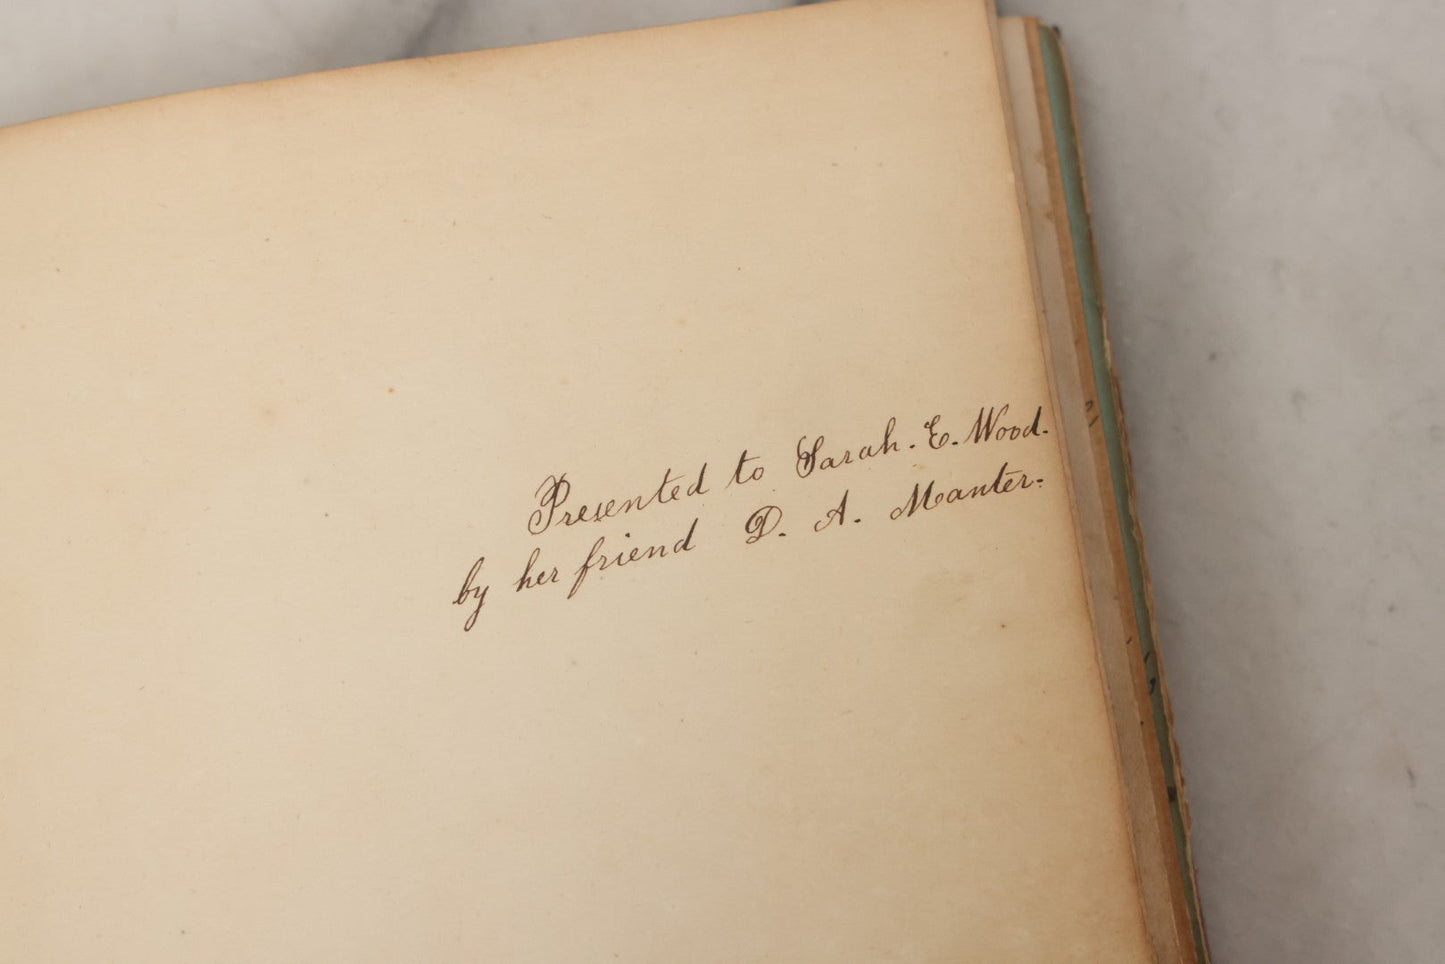 Presented to Sarah. E. Wood.
by her friend D. A. Manter.